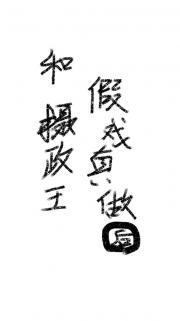 和摄政王
假戏真做后